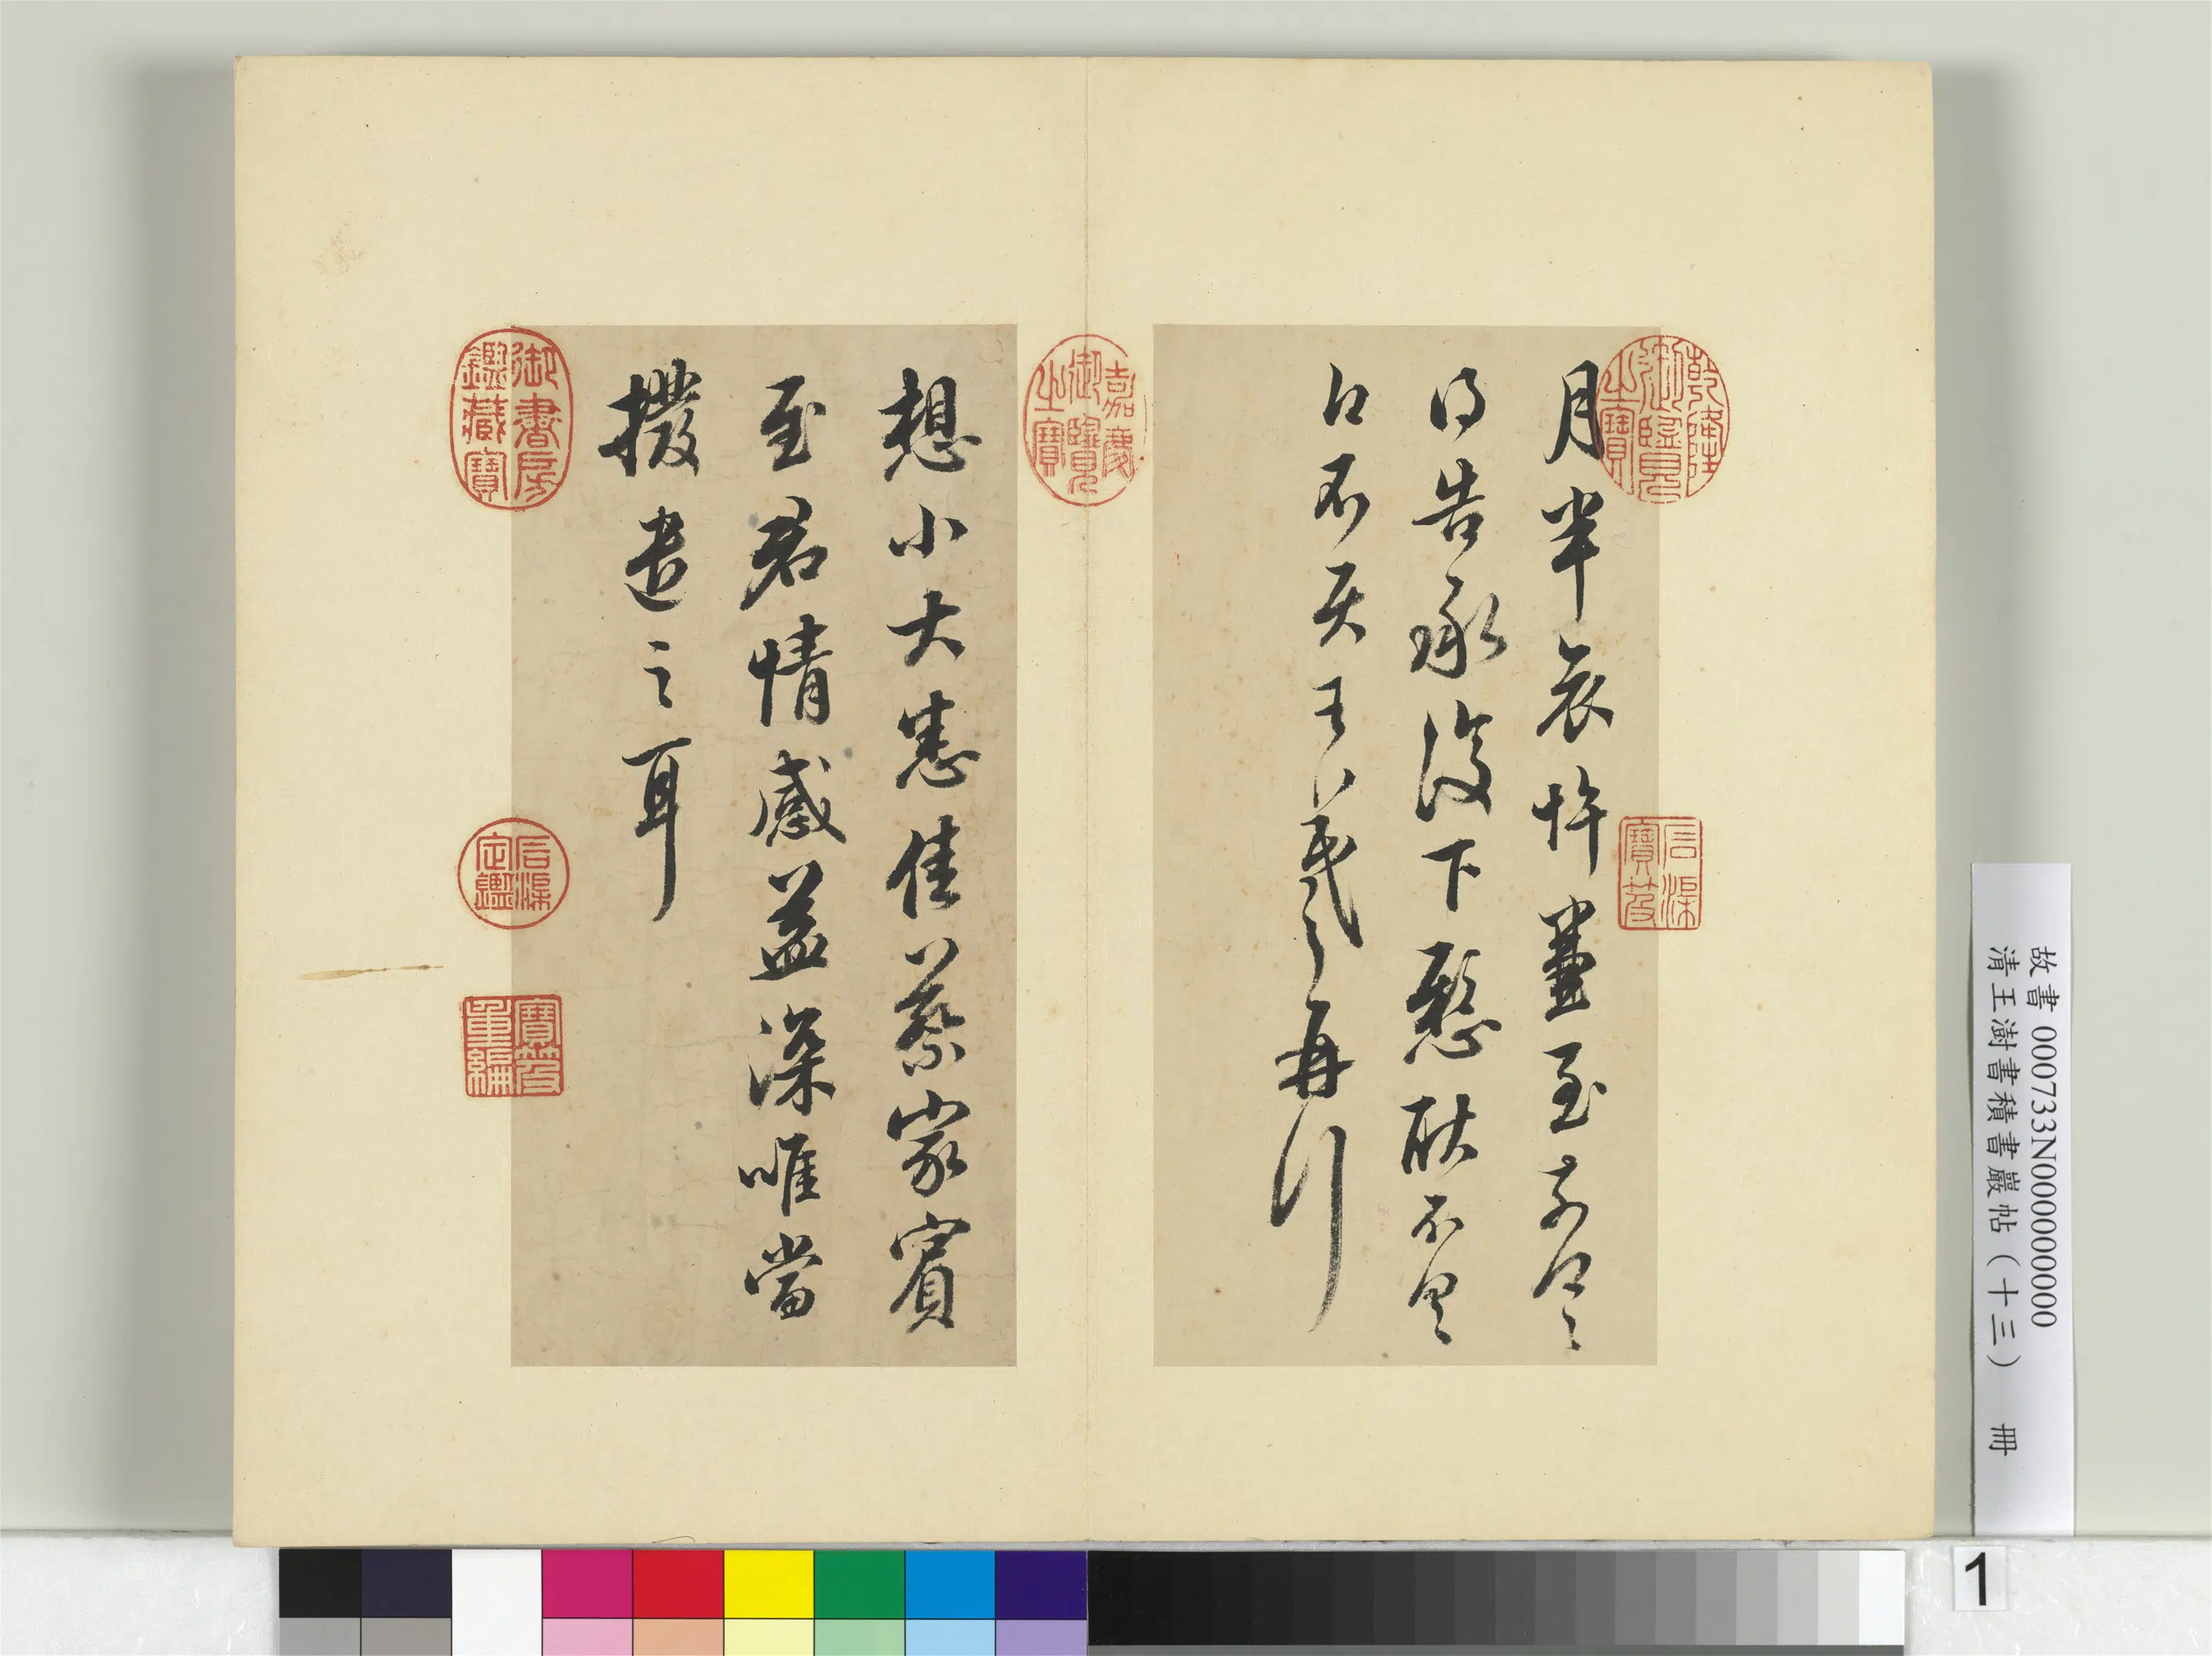 乾隆御覽之寶
石渠寶笈
月半哀悼薑至前得〻
得告承復下懸耿不具
告不具王羲之再行
嘉慶御覽之寶
想小大悉佳蔡家賓
至君情感益深唯當
撥遣之耳
御書房鑑藏寶
石渠定鑑
寶笈重編
故書 000733N000000000
清王澍書積書巖帖(十三) 冊
1